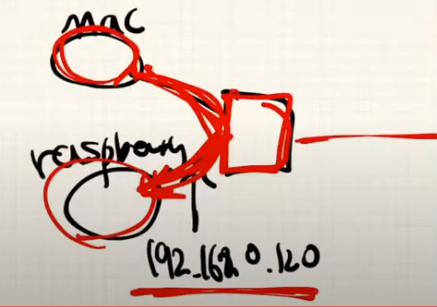 mac
raspberry
192.168.0.120